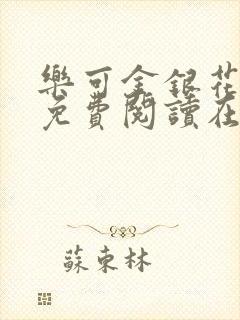 樂可金銀花
免費閱讀在
蘇東林